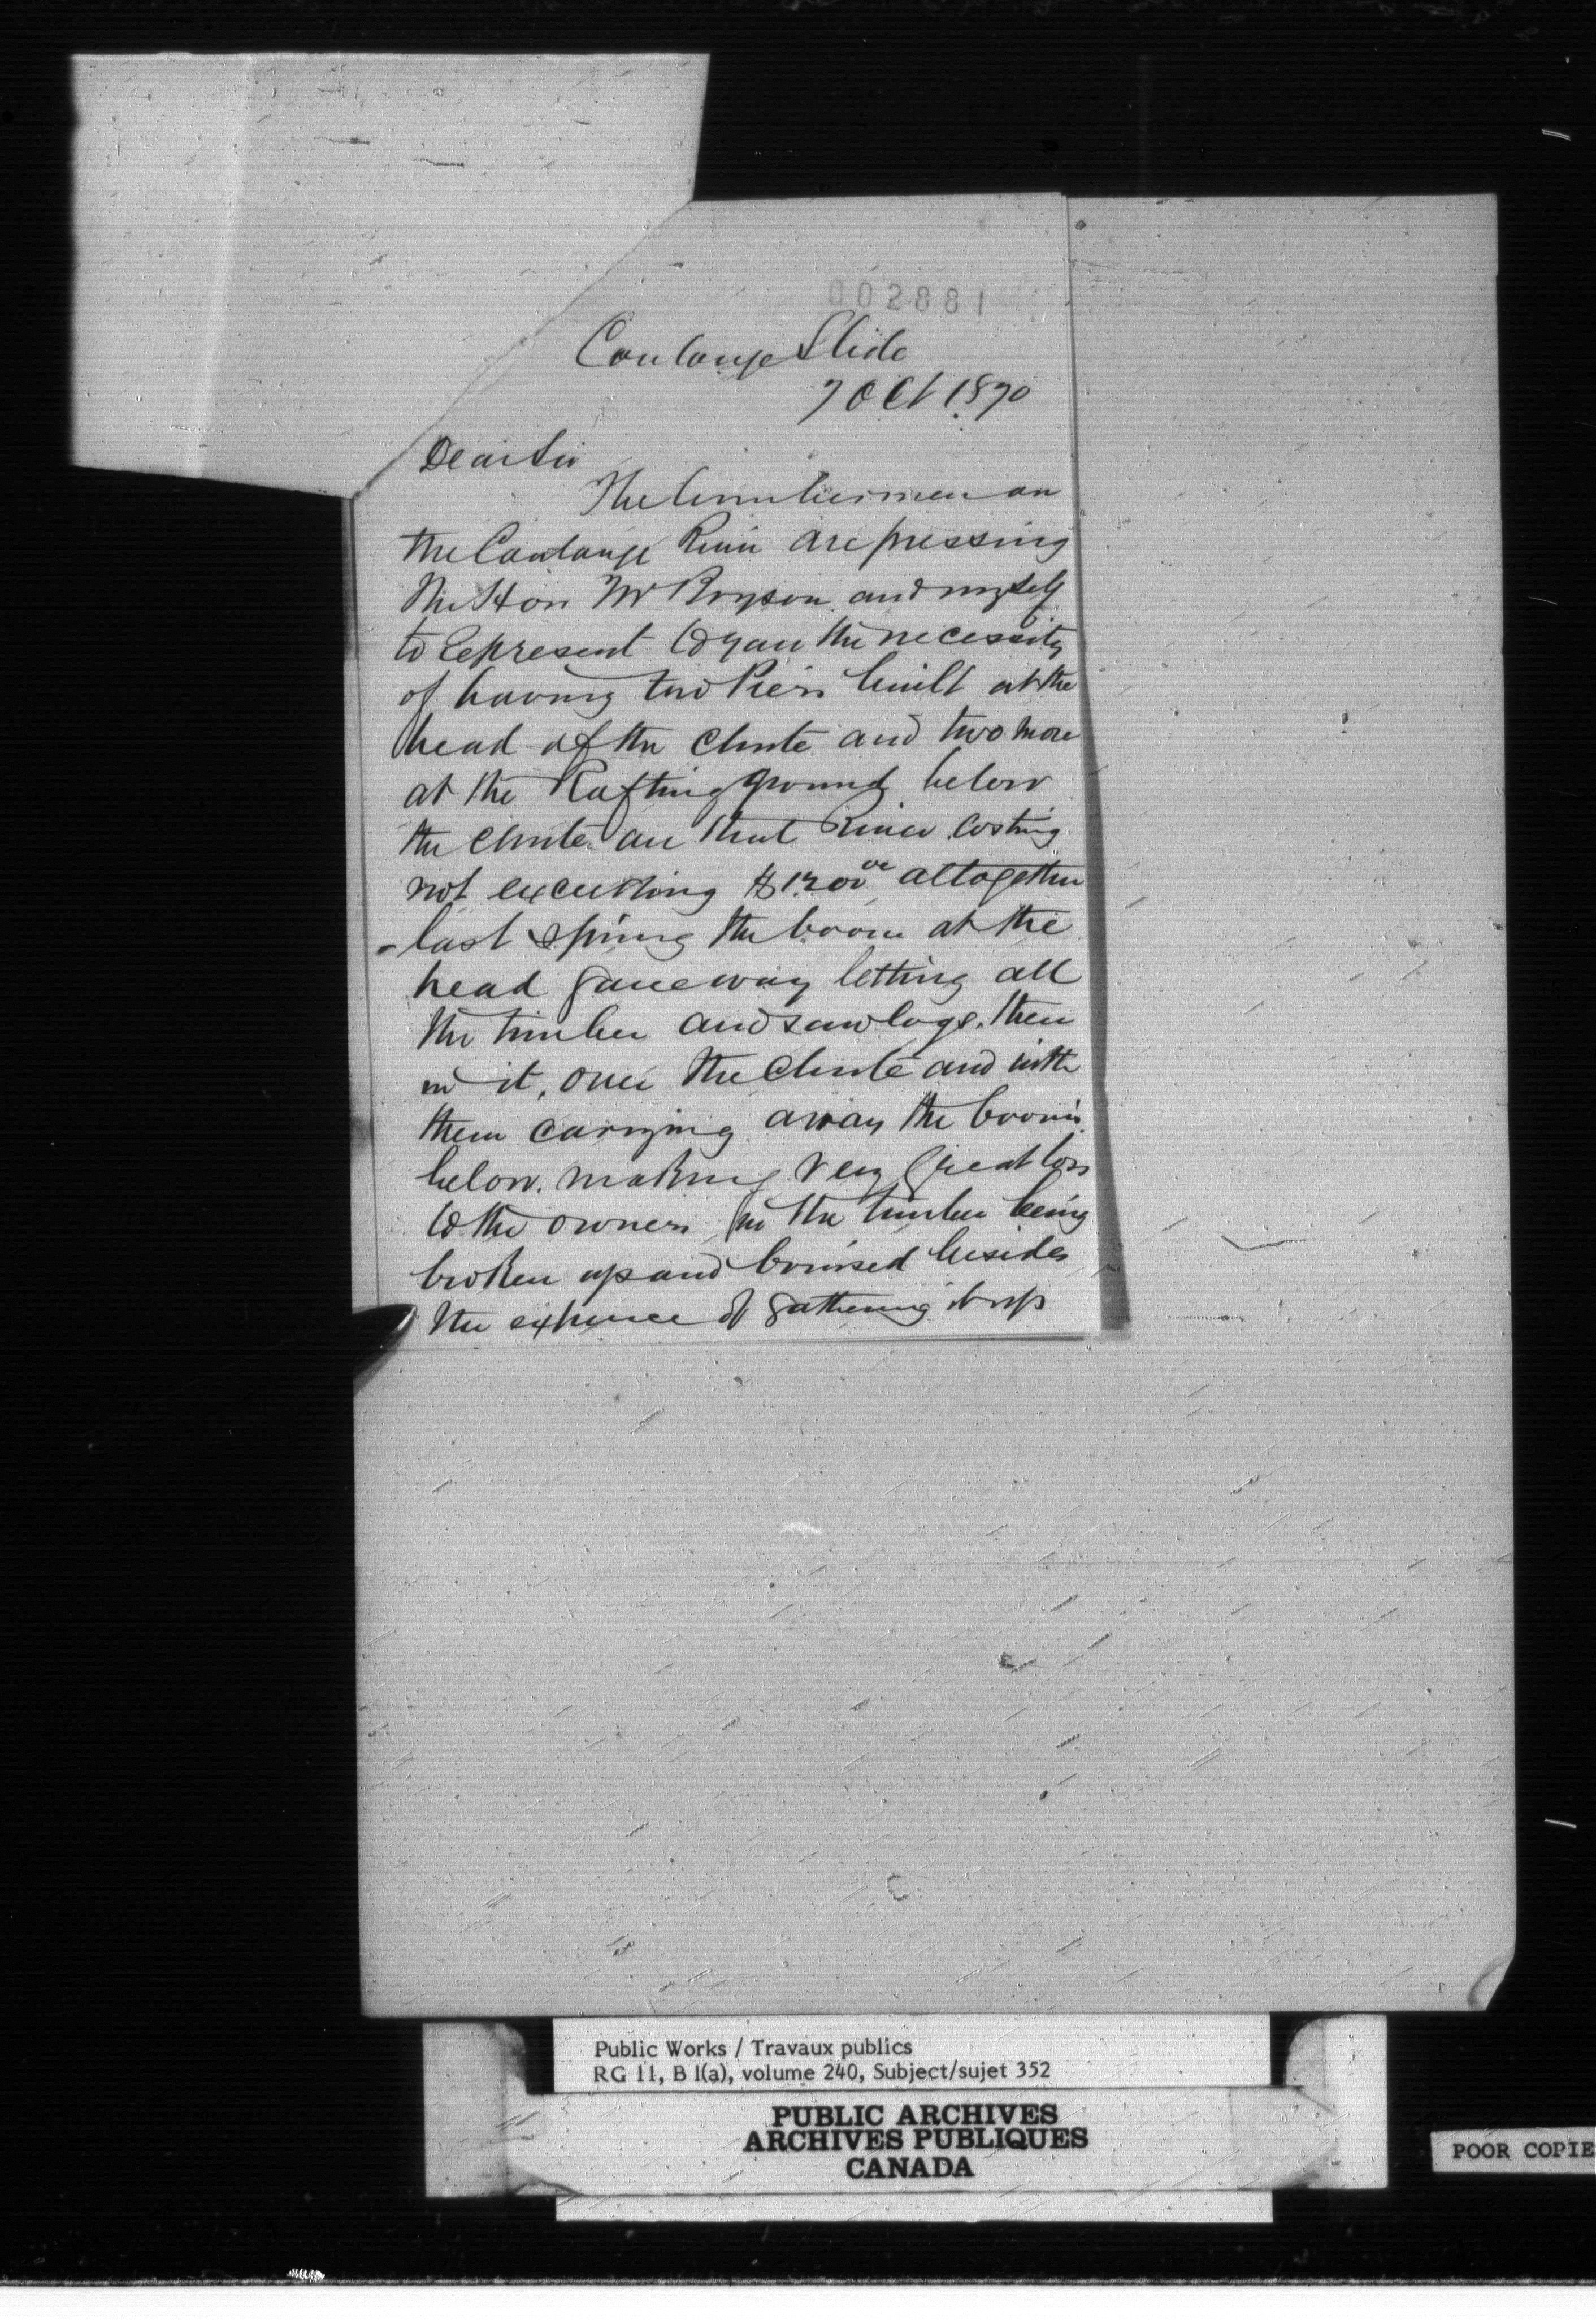 002881
Coulonge Slide
7 Oct 1870
Dear Sir
The lumbermen on
the Coulonge River are pressing
the Hon Mr Bryson and myself
to represent to you the necessity
of having two Piers built at the
head of the chute and two more
at the Rafting ground below
the chute on that River costing
not exceeding $1200 00 altogether
last spring the boom at the
head gave way letting all
the timber and saw logs, then
in it, over the chute and with
them carrying away the booms
below. making very great loss
to the owners in the timber being
broken up and bruised besides
the expence of gathering it up
Public Works / Travaux publics
RG 11, B 1(a), volume 240, Subject/sujet 352
PUBLIC ARCHIVES
ARCHIVES PUBLIQUES
CANADA
POOR COPIE